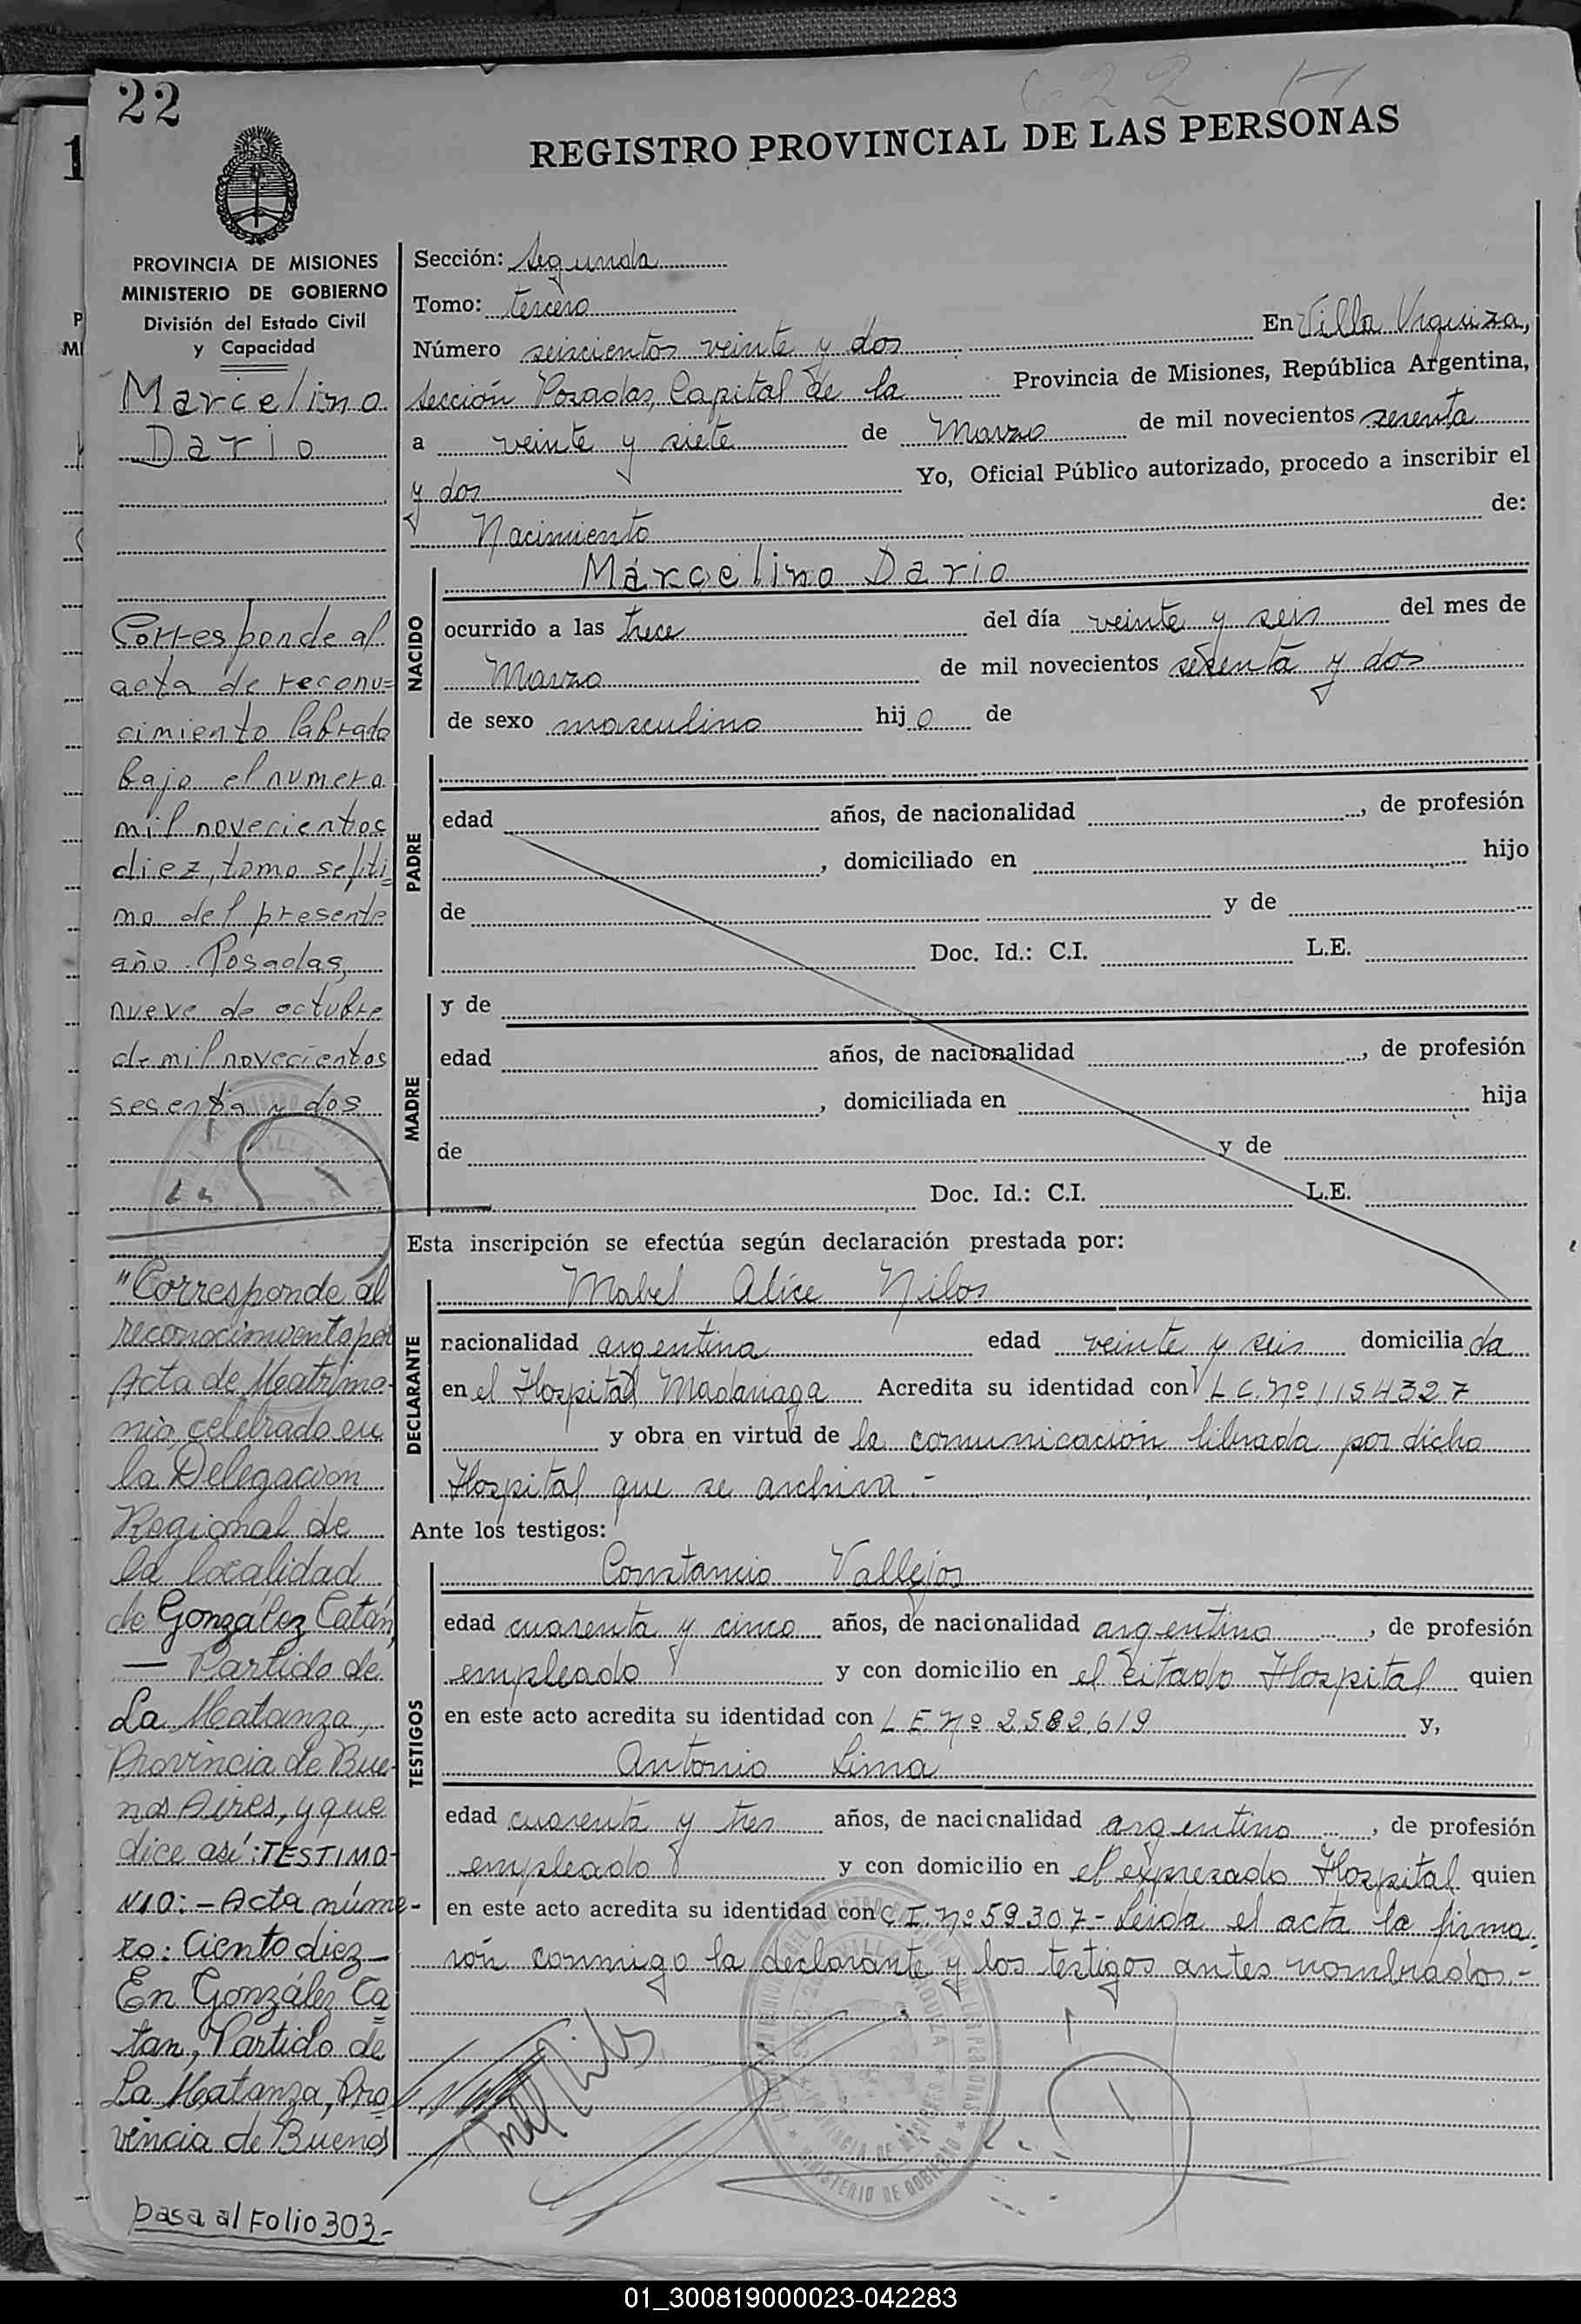 22
REGISTRO PROVINCIAL DE LAS PERSONAS
1
PROVINCIA DE MISIONES
MINISTERIO DE GOBIERNO
División del Estado Civil
y Capacidad
Marcelino
Dario
Corresponde al
acta de recono=
cimiento labrada
bajo el numero
mil novecientos
diez, tomo septi=
mo del presente
año. Posadas,
nueve de octubre
de mil novecientos
sesenta y dos
"Corresponde al
reconocimiento por
Acta de Matrimo-
nio celebrado en
la Delegacion
Regional de
la localidad
de González Catán,
— Partido de
La Matanza,
Provincia de Bue-
nos Aires, y que
dice así: TESTIMO-
NIO: - Acta núme-
ro: Ciento diez—
En González Ca=
tan, Partido de
La Matanza, Pro=
vincia de Buenos
pasa al Folio 303-
Sección: Segunda
Tomo: tercero
Número seiscientos veinte y dos En Villa Urquiza,
sección Posadas, Capital de la Provincia de Misiones, República Argentina,
a veinte y siete de Marzo de mil novecientos sesenta
y dos Yo, Oficial Público autorizado, procedo a inscribir el
Nacimiento de:
NACIDO
Marcelino Dario
ocurrido a las trece del día veinte y seis del mes de
Marzo de mil novecientos sesenta y dos
de sexo masculino hijo de
PADRE
edad años, de nacionalidad , de profesión
, domiciliado en hijo
de y de
Doc. Id.: C.I. L.E.
MADRE
y de
edad años, de nacionalidad , de profesión
, domiciliada en hija
de y de
Doc. Id.: C.I. L.E.
Esta inscripción se efectúa según declaración prestada por:
DECLARANTE
Mabel Alice Nilos
nacionalidad argentina edad veinte y seis domiciliada
en el Hospital Madariaga Acredita su identidad con L.C. Nº 1154327
y obra en virtud de la comunicación librada por dicho
Hospital que se archiva.-
Ante los testigos:
TESTIGOS
Constancio Vallejos
edad cuarenta y cinco años, de nacionalidad argentino, de profesión
empleado y con domicilio en el citado Hospital quien
en este acto acredita su identidad con L E Nº 2.582.619 y,
Antonio Lima
edad cuarenta y tres años, de nacionalidad argentino, de profesión
empleado y con domicilio en el expresado Hospital quien
en este acto acredita su identidad con C I. Nº 59.307- Leida el acta la firma.
rón conmigo la declarante y los testigos antes nombrados.-
01_300819000023-042283